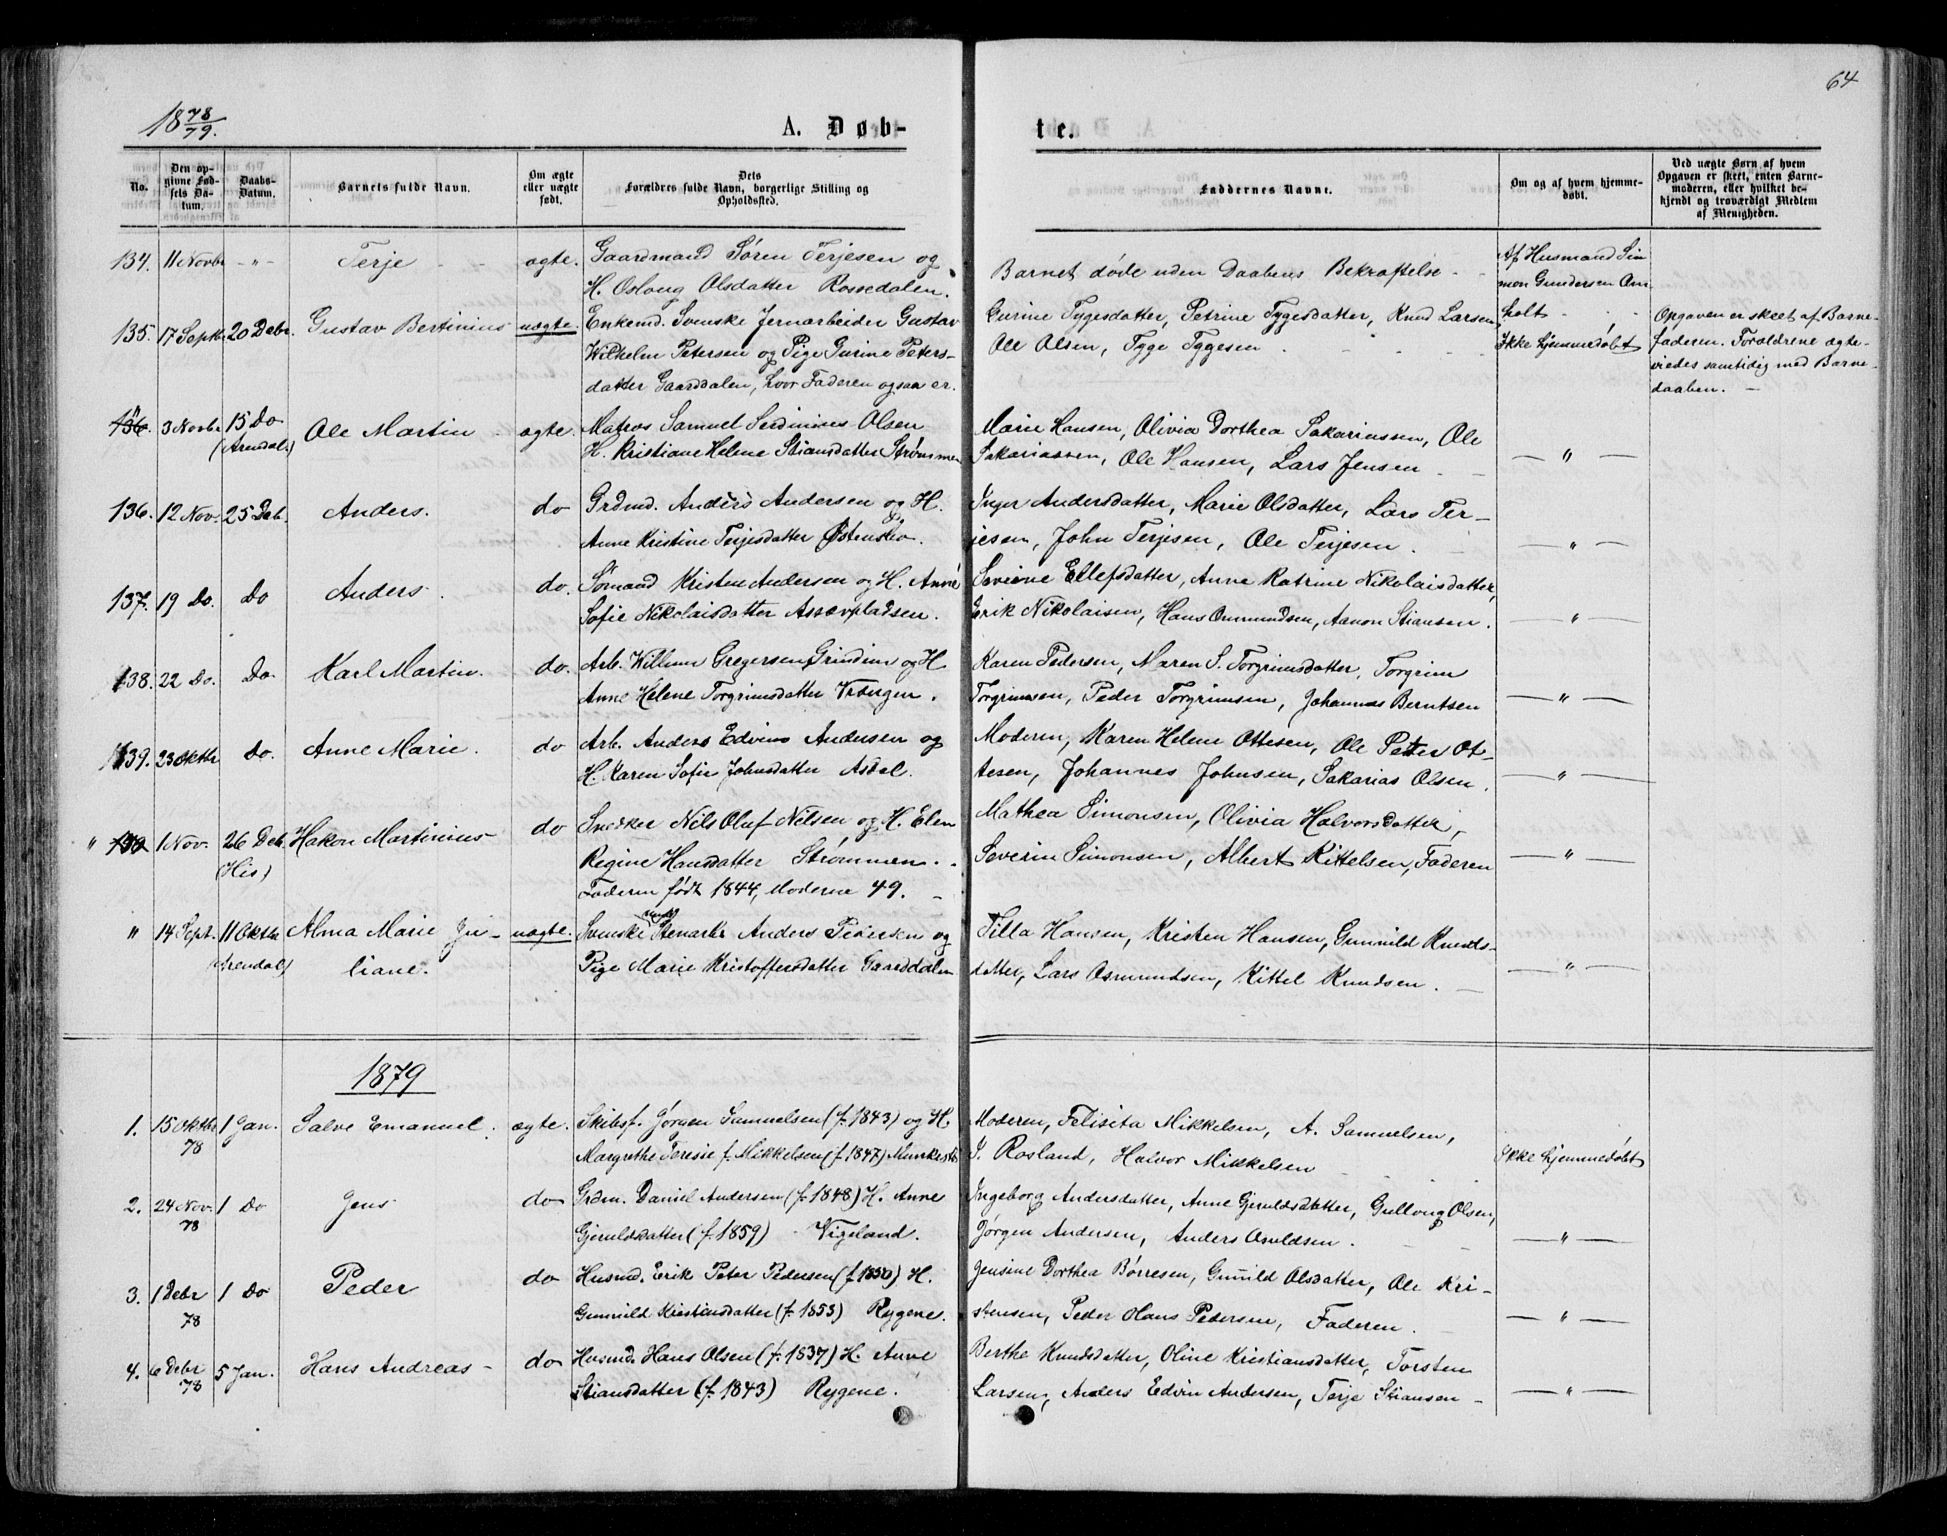 64
18 78/79.
A. Døb-
te.
No.
Den op-
givne Fød-
sels Da-
tum.
Daabs-
Datum.
Barnets fulde Navn.
Om ægte
eller uægte
født.
Dets
Forældres fulde Navn, borgerlige Stilling og
Opholdsted.
Faddernes Navne.
Om og af hvem hjemme-
døbt.
Ved uægte Børn af hvem
Opgaven er skeet, enten Barne-
moderen, eller hvilket be-
kjendt og troværdigt Medlem
af Menigheden.
134. 11 Novbr -"- Terje - - ægte. Gaardmand Søren Terjesen og
H. Oslong Olsdatter Rossedalen.
Barnet døde uden Daabens Bekræftelse - -
Af Husmand Si-
mon Gundersen Om-
holt - -
135. 17 Septbr 20 Debr. Gustav Bertinius uægte. Enkemd. Svenske Jernarbeider Gustav
Wilhelm Petersen og Pige Gurine Peters-
datter Gaarddalen, hvor Faderen ogsaa er.
Gurine Tygesdatter, Petrine Tygesdatter, Knud Larsen,
Ole Olsen, Tyge Tygesen - - -
Ikke hjemmedøbt
Opgaven er skeet af Barne-
faderen. Forældrene ægte-
viedes samtidig med Barne-
daaben. -
" 136. 3 Novbr 15 Do
(Arendal) Ole Martin - ægte. Matros Samuel Serdinius Olsen
H. Kristiane Helene Stiansdatter Strømmen
Marie Hansen, Olivia Dorthea Sakariassen, Ole
Sakariassen, Ole Hansen, Lars Jensen - - " -
136. 12 Nov. 25 Deb. Anders. do Grdmd. Anders Andersen og H.
Anne Kristine Terjesdatter Østensbø.
Inger Andersdatter, Marie Olsdatter, Lars Ter-
jesen, John Terjesen, Ole Terjesen. - " -
137. 19 Do. Do Anders. do. Sømand Kristen Andersen og H. Anne
Sofie Nikolaisdatter Assævpladsen.
Sevine Ellefsdatter, Anne Katrine Nikolaisdatter,
Erik Nikolaisen, Hans Ommundsen, Aanon Stiansen. - " -
138. 22 Do. Do. Karl Martin. do. Arb. Willum Gregersen Grindim og H.
Anne Helene Torgrimsdatter Vrængen.
Karen Pedersen, Maren S. Torgrimsdatter, Torgrim
Torgrimsen, Peder Torgrimsen, Johannes Berntsen - " -
139. 23 Oktbr Do. Anne Marie. do Arb. Anders Edvins Andersen og
H. Karen Sofie Johnsdatter Asdal.
Moderen, Karen Helene Ottesen, Ole Peter Ot-
tesen, Johannes Johnsen, Sakarias Olsen. - " -
" 1 Nov. 26 Deb.
(His) Hakon Martinius do Snedker Nils Oluf Nilsen og H. Elen
Regine Hansdatter Strømmen.
Faderen født 1844, Moderne 49. -
Mathea Simonsen, Olivia Halvorsdatter,
Severin Simonsen, Albert Kittelsen, Faderen - " -
" 14 Sept. 11 Oktbr
(Arendal) Alma Marie Ju-
liane. uægte. Svenske Stenarbr Anders Pedersen og
Pige Marie Kristoffersdatter Gaarddalen
Tilla Hansen, Kristen Hansen, Gunnild Knuds-
datter, Lars Osmundsen, Kittel Knudsen. - - " -
1879
1. 15 Oktbr
78 1 Jan. Salve Emanuel. ægte. Skibsf. Jørgen Samuelsen (f. 1843) og H.
Margrethe Teresie f. Mikkelsen (f. 1847)
Moderen, Felisita Mikkelsen, A. Samuelsen,
J. Rosland, Halvor Mikkelsen - Ikke hjemmedøbt
2. 24 Nov.
78 1 Do Jens do Grdm. Daniel Andersen (f. 1848) H. Anne
Gjeruldsdatter (f. 1859) Vigeland.
Ingeborg Andersdatter, Anne Gjeruldsdatter, Gullong Olsen,
Jørgen Andersen, Anders Osuldsen. - - " -
3. 1 Debr
78 1 Do Peder do Husmd. Erik Peter Pedersen (f. 1850) H.
Gunnild Kristensdatter (f. 1853) Rygene.
Jensine Dorthea Børresen, Gunild Olsdatter, Ole Kri-
stensen, Peder Hans Pedersen, Faderen. - - " -
4. 6 Debr
78 5 Jan. Hans Andreas - do Husmd. Hans Olsen (f. 1837) H. Anne
Stiansdatter (f. 1843) Rygene.
Berthe Knudsdatter, Oline Kristiansdatter, Torsten
Larsen, Anders Edvin Andersen, Terje Stiansen - - " -